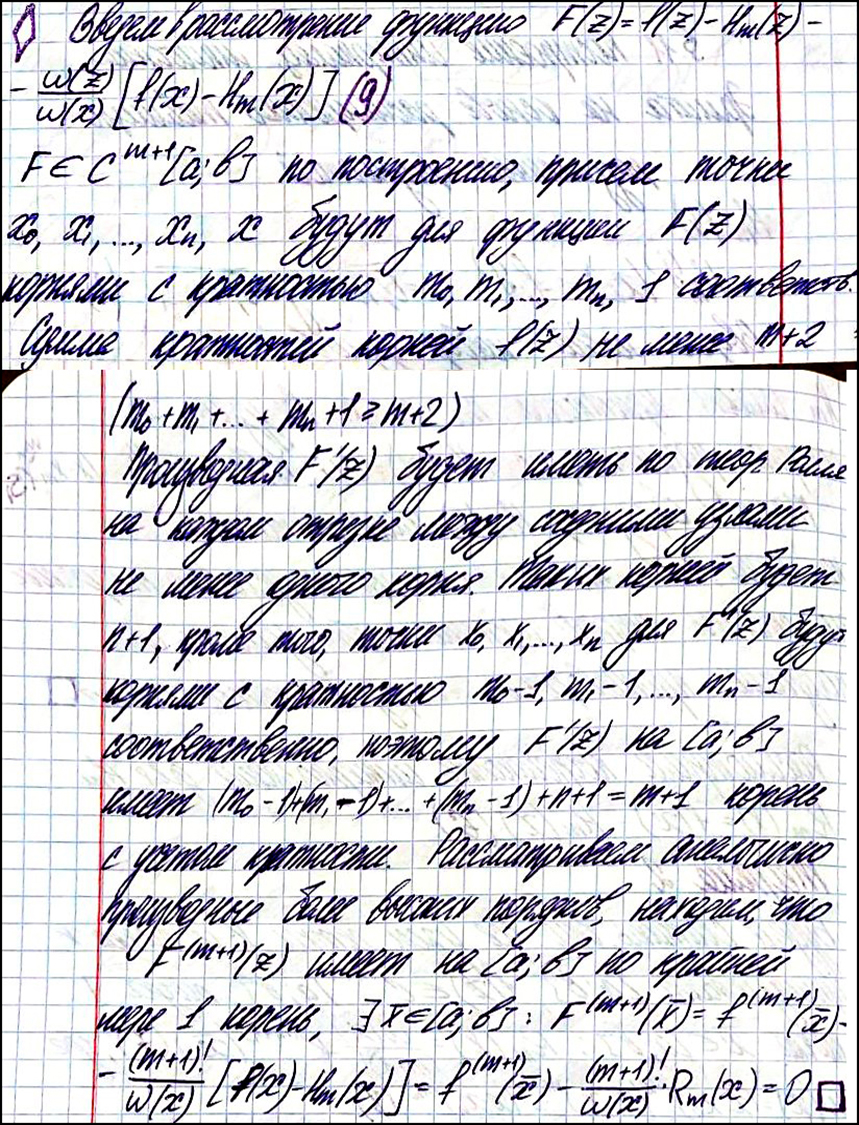 ◊ Введем в рассмотрение функцию F(z) = f(z) - Hm(z) -
- ω(z)/ω(x) [f(x) - Hm(x)] (9)
F ∈ C^{m+1}[a;b] по построению, причем точки
x₀, x₁, ..., xₙ, x будут для функции F(z)
корнями с кратностью m₀, m₁, ..., mₙ, 1 соответств.
Сумма кратностей корней f(z) не менее m+2
(m₀ + m₁ + ... + mₙ + 1 ≥ m+2)
Производная F'(z) будет иметь по теор Ролля
на каждом отрезке между соседними узлами
не менее одного корня. Таких корней будет
n+1, кроме того, точки x₀, x₁, ..., xₙ для F'(z) будут
корнями с кратностью m₀-1, m₁-1, ..., mₙ-1
соответственно, поэтому F'(z) на [a;b]
имеет (m₀-1)+(m₁-1)+...+(mₙ-1)+n+1 = m+1 корень
с учётом кратности. Рассматриваем аналогично
производные более высоких порядков, находим, что
F^{(m+1)}(z) имеет на [a;b] по крайней
мере 1 корень, ∃ x̄ ∈ [a;b] : F^{(m+1)}(x̄) = f^{(m+1)}(x̄) -
- (m+1)!/ω(x) [f(x) - Hm(x)] = f^{(m+1)}(x̄) - (m+1)!/ω(x) · Rm(x) = 0 □